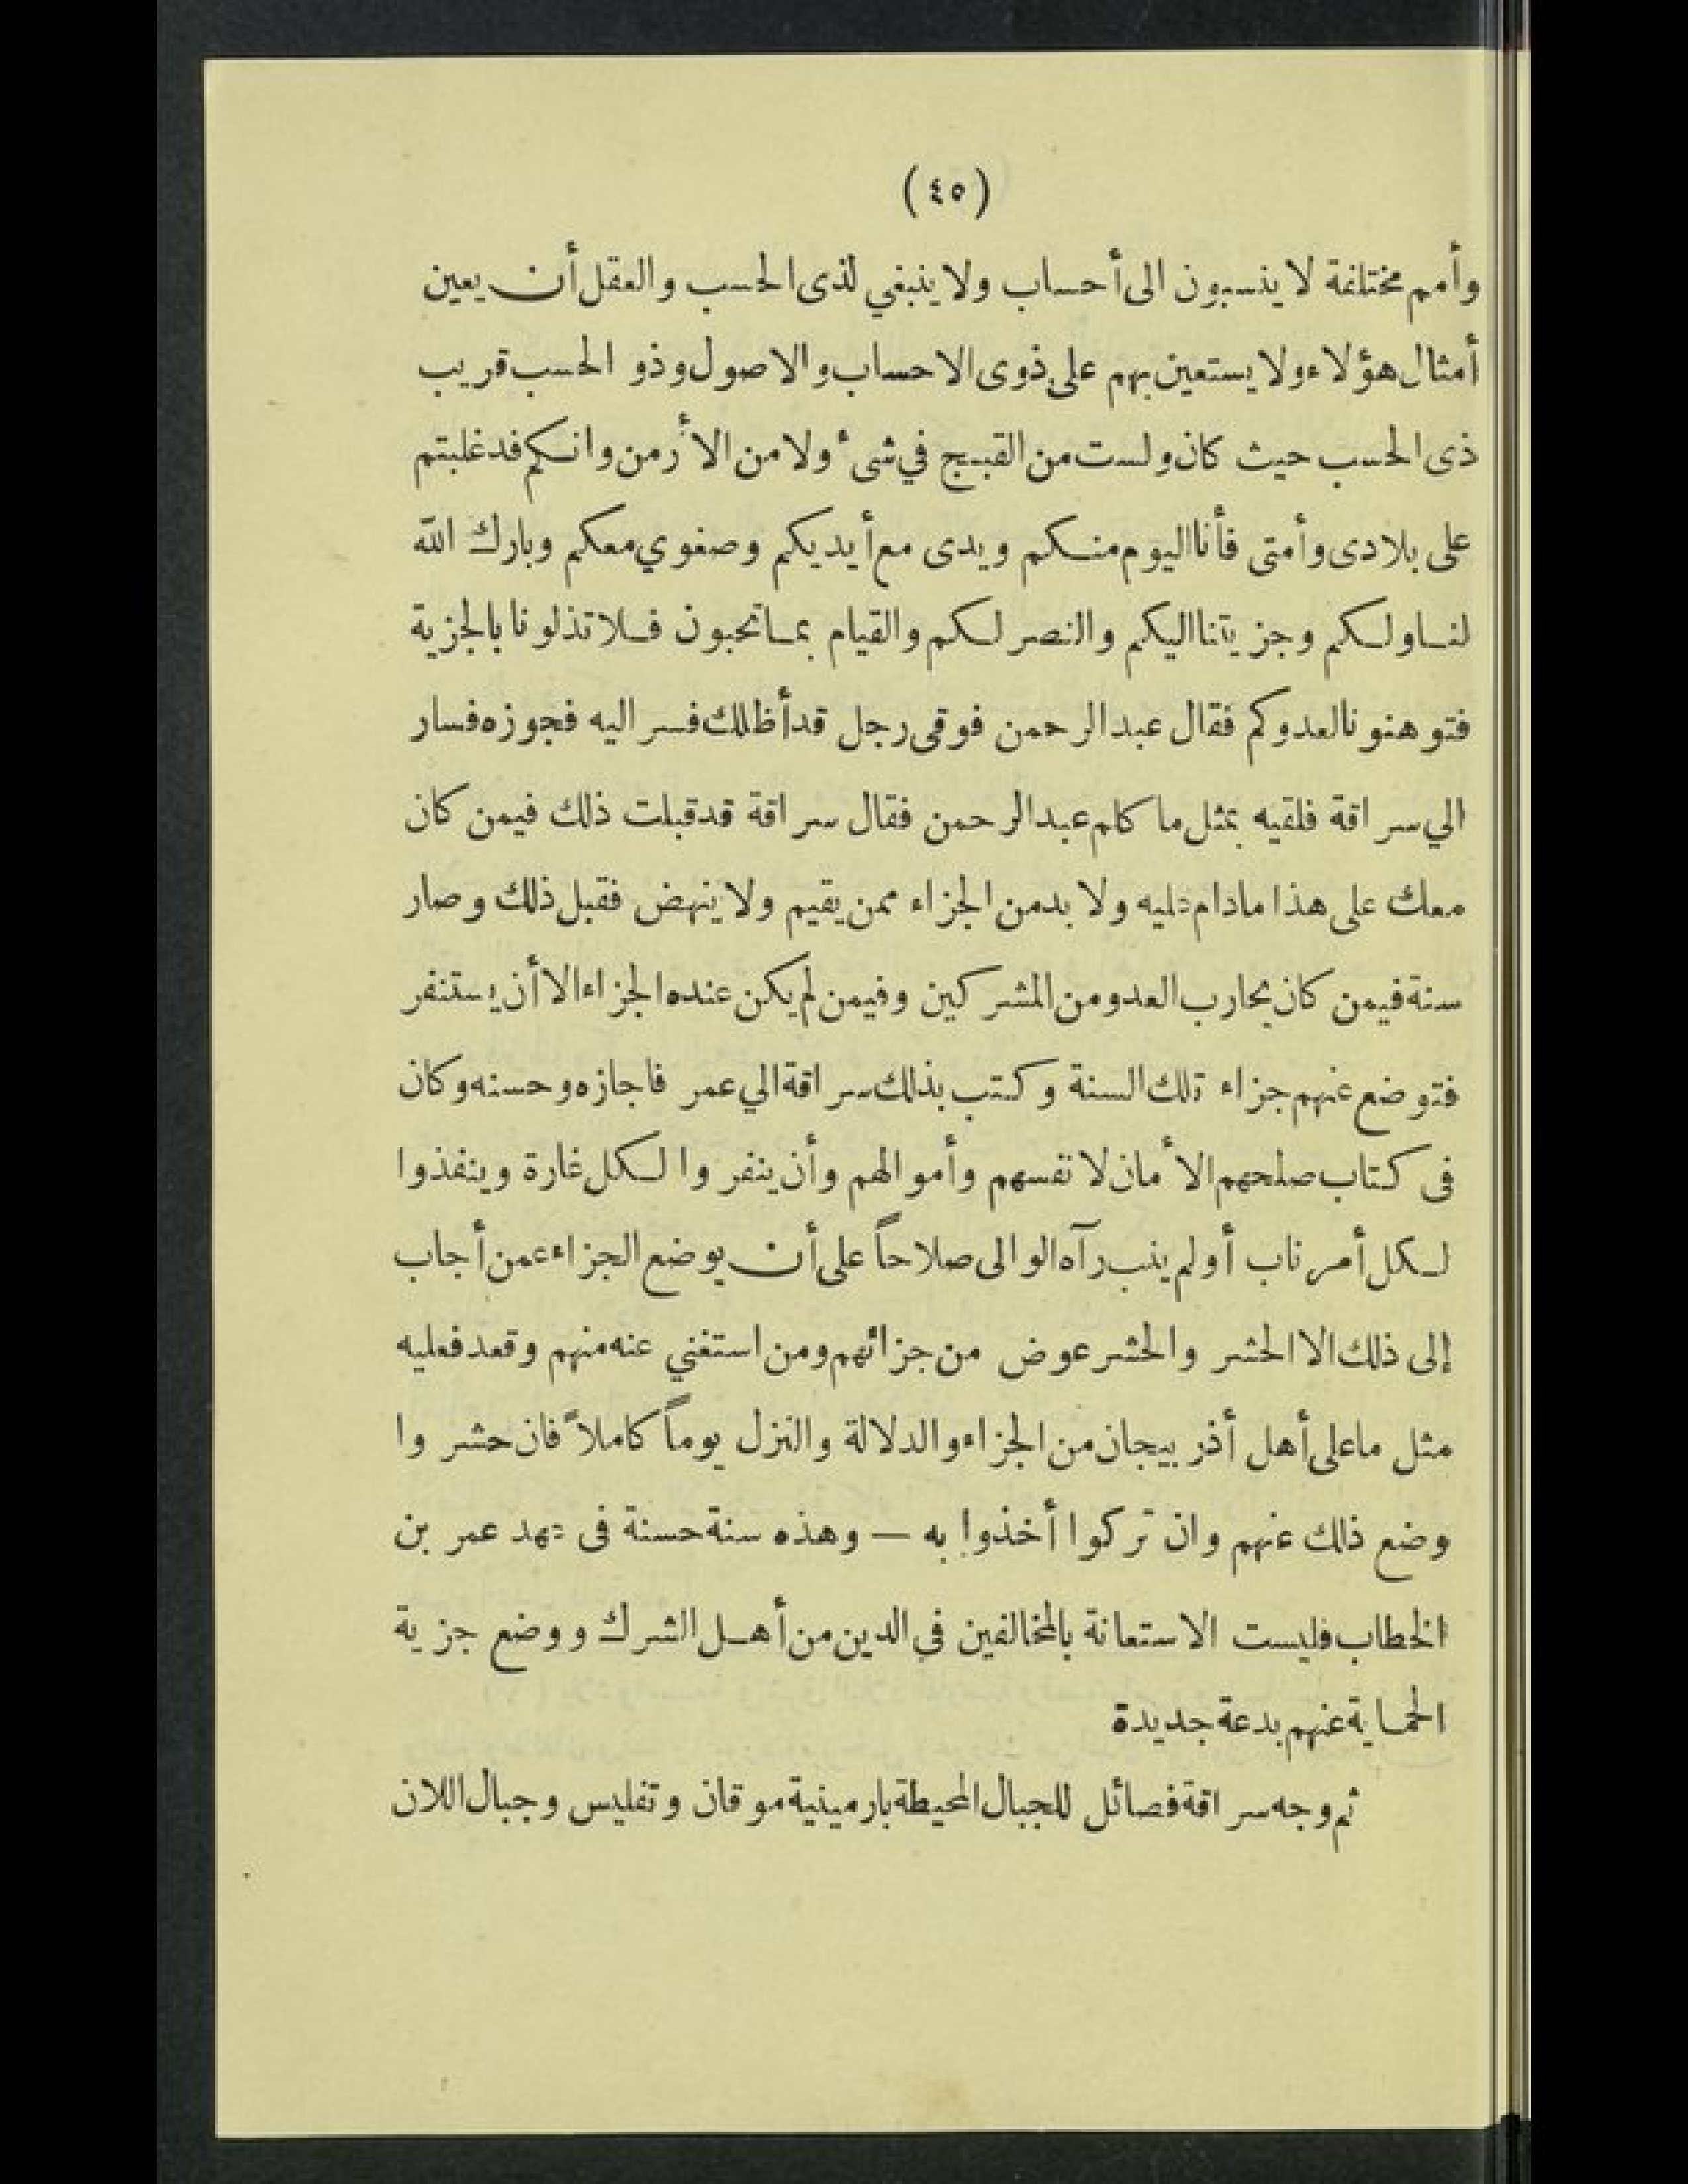 (٤٥)
وأمم مختلفة لا ينسبون الى أحساب ولا ينبغي لذى الحسب والعقل أن يعين
أمثال هؤلاء ولا يستعين بهم على ذوى الاحساب والاصول وذو الحسب قريب
ذى الحسب حيث كان ولست من القبج في شىء ولا من الأرمن وانكم قد غلبتم
على بلادى وأمتى فأنا اليوم منكم ويدى مع أيديكم وصغوي معكم وبارك الله
لنا ولكم وجزيتنا اليكم والنصر لكم والقيام بما تحبون فلا تذلونا بالجزية
فتوهنونا لعدوكم فقال عبد الرحمن فوقى رجل قد أظلك فسر اليه فجوزه فسار
الي سراقة فلقيه بمثل ما كلم عبد الرحمن فقال سراقة قد قبلت ذلك فيمن كان
معك على هذا مادام عليه ولا بد من الجزاء ممن يقيم ولا ينهض فقبل ذلك وصار
سنة فيمن كان يحارب العدو من المشركين وفيمن لم يكن عنده الجزاء الا أن يستنفر
فتوضع عنهم جزاء تلك السنة وكتب بذلك سراقة الي عمر فاجازه وحسنه وكان
فى كتاب صلحهم الأمان لانفسهم وأموالهم وأن ينفروا لكل غارة وينفذوا
لكل أمر ناب أو لم ينب رآه الوالى صلاحاً على أن يوضع الجزاء عمن أجاب
إلى ذلك الا الحشر والحشر عوض من جزائهم ومن استغني عنه منهم وقعد فعليه
مثل ما على أهل أذربيجان من الجزاء والدلالة والنزل يوماً كاملاً فان حشروا
وضع ذلك عنهم وان تركوا أخذوا به — وهذه سنة حسنة فى عهد عمر بن
الخطاب فليست الاستعانة بالمخالفين في الدين من أهل الشرك ووضع جزية
الحماية عنهم بدعة جديدة
ثم وجه سراقة فصائل للجبال المحيطة بارمينية موقان وتفليس وجبال اللان